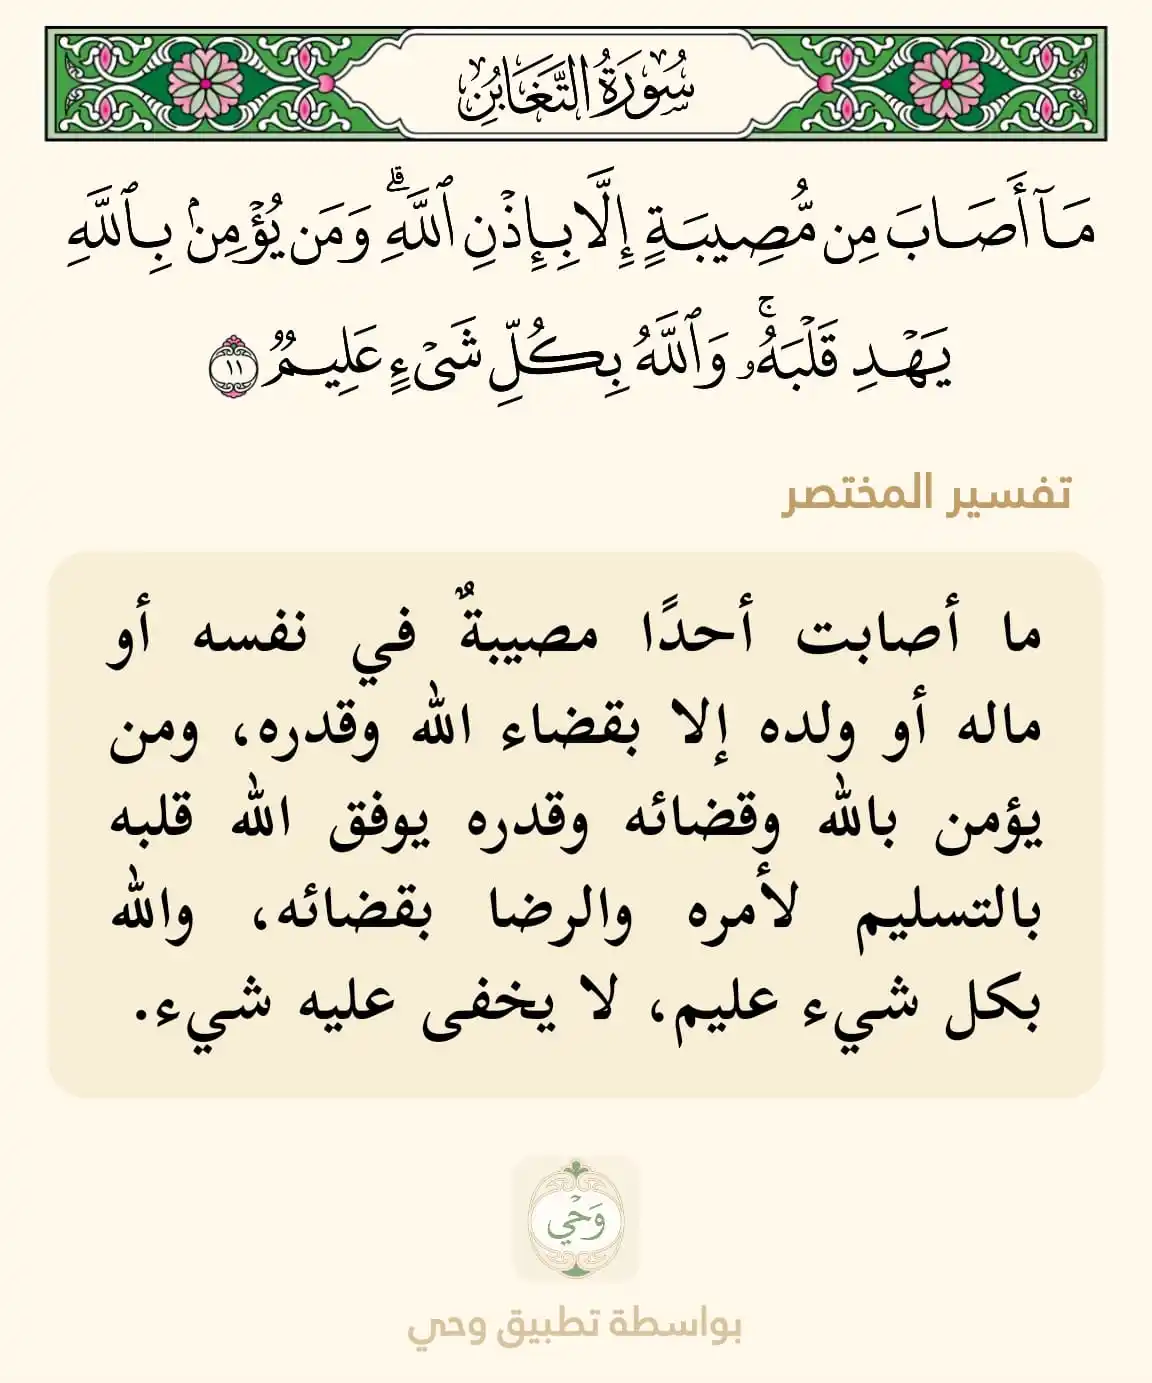 سُورَةُ التَّغَابُنِ
مَآ أَصَابَ مِن مُّصِيبَةٍ إِلَّا بِإِذۡنِ ٱللَّهِۗ وَمَن يُؤۡمِنۢ بِٱللَّهِ
يَهۡدِ قَلۡبَهُۥۚ وَٱللَّهُ بِكُلِّ شَيۡءٍ عَلِيمٞ ١١
تفسير المختصر
ما أصابت أحدًا مصيبةٌ في نفسه أو
ماله أو ولده إلا بقضاء الله وقدره، ومن
يؤمن بالله وقضائه وقدره يوفق الله قلبه
بالتسليم لأمره والرضا بقضائه، والله
بكل شيء عليم، لا يخفى عليه شيء.
وَحْي
بواسطة تطبيق وحي